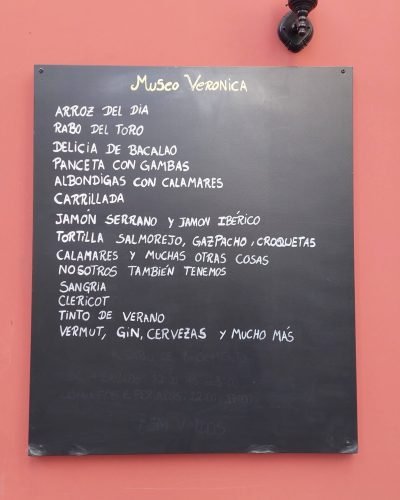 Museo Veronica
ARROZ DEL DIA
RABO DEL TORO
DELICIA DE BACALAO
PANCETA CON GAMBAS
ALBONDIGAS CON CALAMARES
CARRILLADA
JAMÓN SERRANO Y JAMON IBÉRICO
TORTILLA SALMOREJO, GAZPACHO, CROQUETAS
CALAMARES Y MUCHAS OTRAS COSAS
NOSOTROS TAMBIÉN TENEMOS
SANGRIA
CLERICOT
TINTO DE VERANO
VERMUT, GIN, CERVEZAS Y MUCHO MÁS